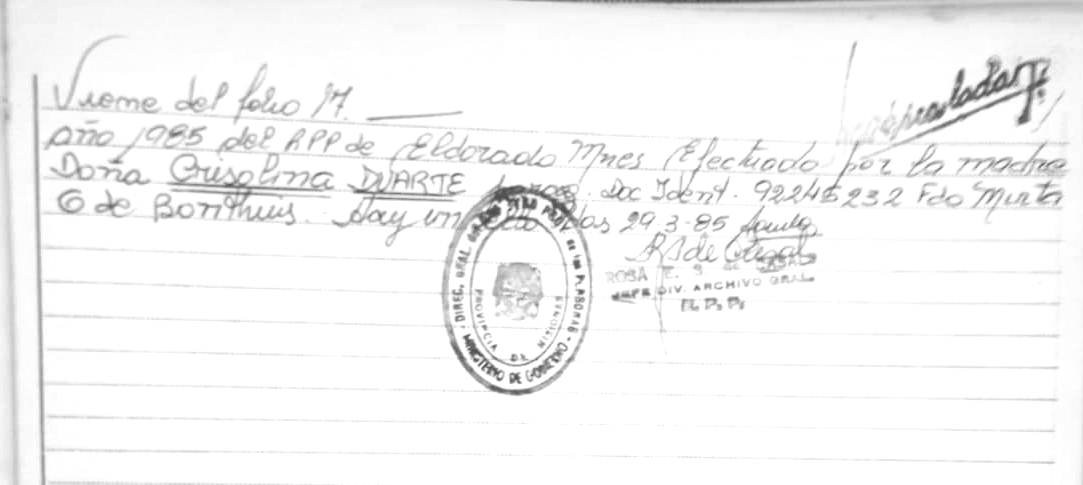 Viene del folio 17.
año 1985 del RPP de Eldorado Mnes Efectuado por la madre
Doña Crisolina DUARTE Doc Ident. 92245232 Fdo Mirta
G de Bonthuis. Hay un sello Pdas 29-3-85
ROSA E. S de CASALS
JEFE DIV. ARCHIVO GRAL.
R. P. P.
DIREC. GRAL. de las PERSONAS
MINISTERIO DE GOBIERNO
PROVINCIA DE MISIONES